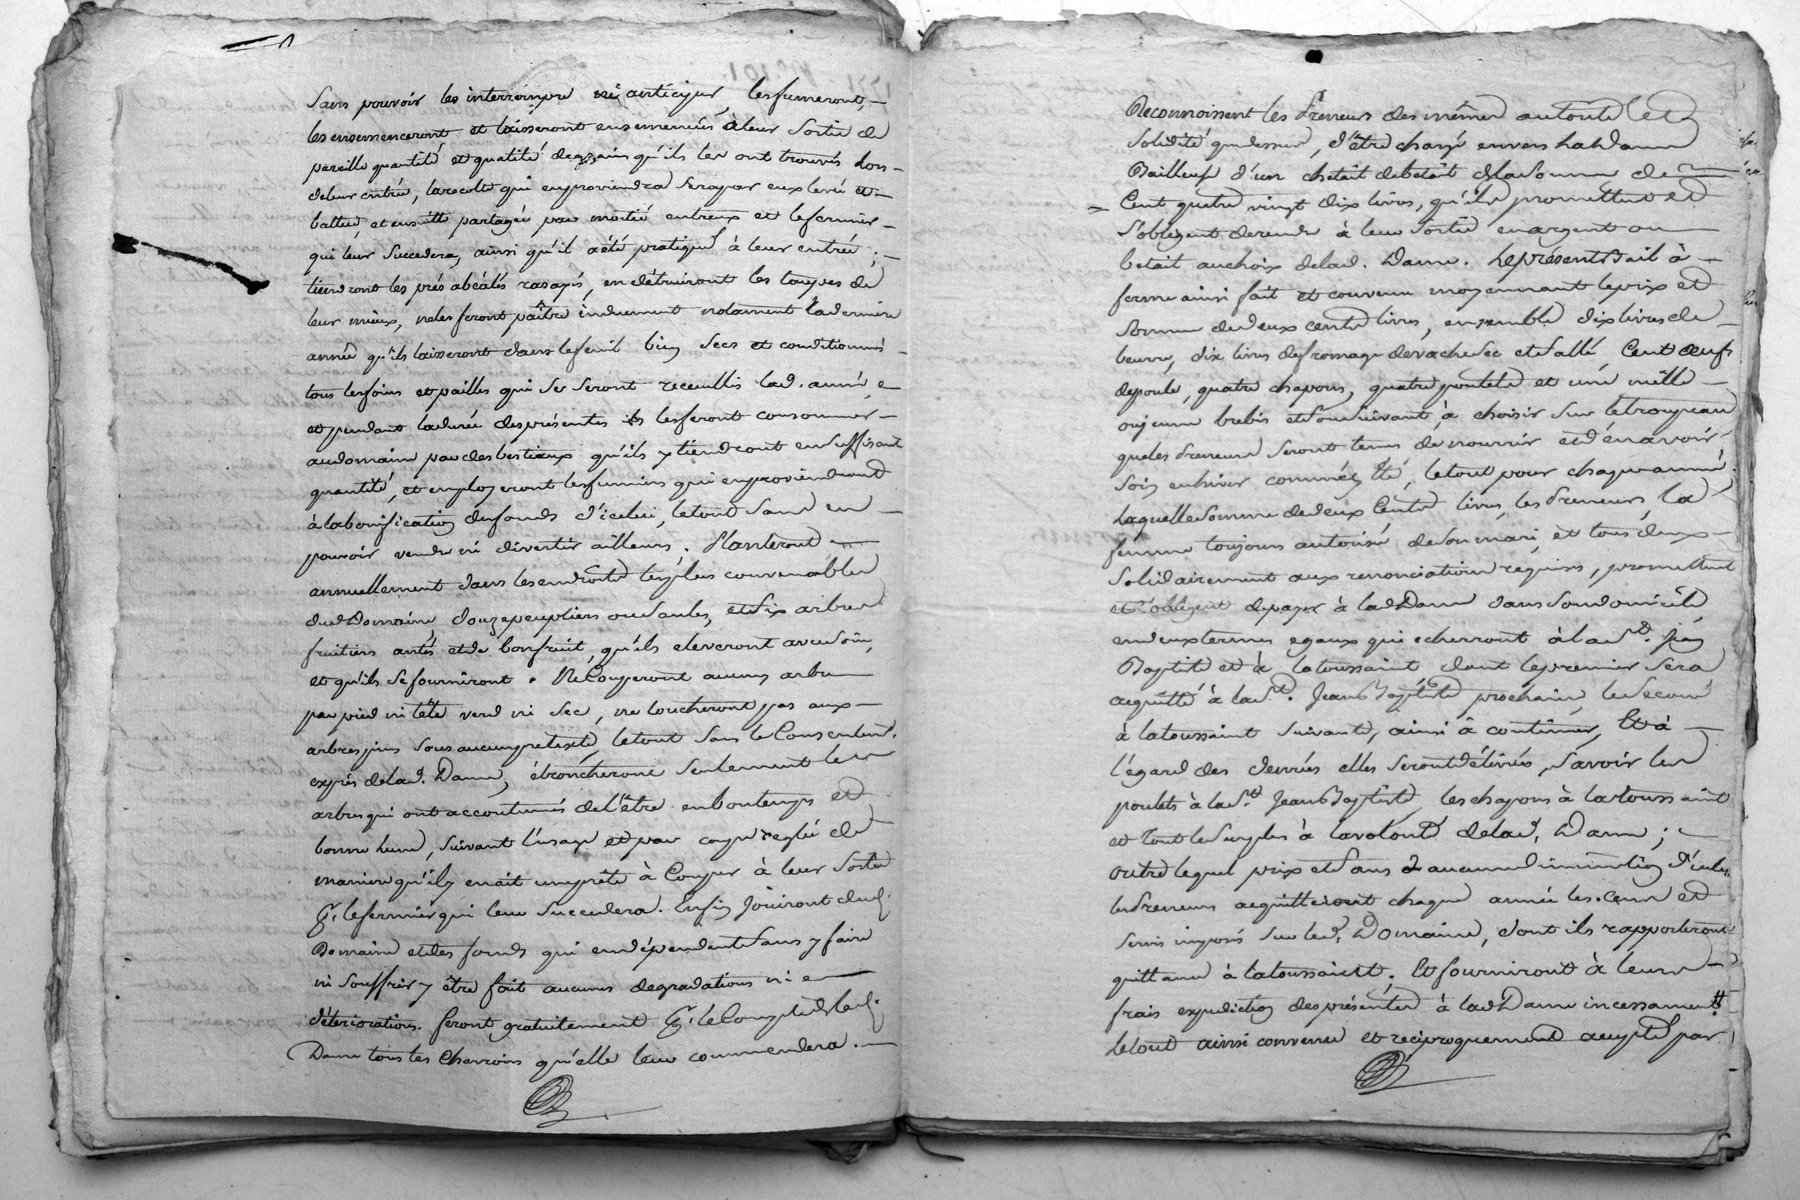 Sans pouvoir les interrompre ni anticiper, les fumeront,
les ensemenceront et laisseront ensemencés à leur Sortie de
pareille quantité et qualité de grains qu'ils les ont trouvés lors
de leur entrée, la recolte qui en proviendra Sera par eux levée et
battue, et ensuitte partagée par moitié entreux et le fermier
qui leur Succedera, ainsi qu'il a été pratiqué à leur entrée ;
tiendront les prés abéalés rasapés, en détruiront les taupes de
leur mieux, ne les feront paître induement notament la derniere
année qu'ils laisseront dans le fenil bien Secs et conditionnés
tous les foins et pailles qui Se Seront receuillis lad. année,
et pendant la durée des présentes ils les feront consommer
au domaine par des bestiaux qu'ils y tiendront en Suffisant
quantité, et employeront les fumiers qui en proviendront
à la bonification des fonds d'icelui, le tout Sans en
pouvoir vendre ni divertir ailleurs. Planteront
annuellement dans les endroits les plus convenables
dud. Domaine douze peupliers ou Saules, et Six arbres
fruitiers antés et de bon fruit, qu'ils eleveront avec Soin,
et qu'ils Se fourniront. Ne Couperont aucuns arbres
par pied ni tête verd ni Sec, ne toucheront pas aux
arbres pins Sous aucun pretexte, le tout Sans le Consentent.
exprés de lad. Dame, ébroncheront Seulement les
arbres qui ont accoutumés de l'être en bon temps et
bonne Lune, Suivant l'usage et par coupe reglée de
maniere qu'il y en ait une prete à Couper à leur Sortie
pr. le fermier qui leur Succedera. Enfin Joüiront dud.
Domaine et des fonds qui en dépendent Sans y faire
ni Souffrir y être fait aucunes degradations ni
déteriorations. feront gratuitement pr. le Compte de lad.
Dame tous les Charrois qu'elle leur commendera.
Reconnoissent les Preneurs des mêmes autorité et
Solidité que dessus, d'être chargé envers lad. Dame
Bailleuse d'un chetait de betail de la Somme de
Cent quatre vingt dix livres, qu'ils promettent et
S'obligent de rendre à leur Sortie en argent ou
betail au choix de lad. Dame. Le présent Bail à
ferme ainsi fait et convenu moyennant le prix et
Somme de deux cents livres, ensemble dix livres de
beurre, dix livres de fromage de vache Sec et Sallé Cent œufs
de poule, quatre chapons, quatre poulets et une
ou jeune brebis et Son Suivant, à choisir Sur le troupeau
que les Preneurs Seront tenus de nourrir et d'en avoir
Soin en hiver comme en Eté, le tout pour chaque année
Laquelle Somme de deux Cents livres, les Preneurs la
femme toujours autorisée de Son mari et tous deux
Solidairement aux renonciations requises, promettent
et s'obligent de payer à lad. Dame dans Son domicile
en deux termes egaux qui echerront à la St. Jean
Baptiste et à la toussaint dont le premier Sera
acquitté à la St. Jean Baptiste prochain, le Second
à la toussaint Suivante, ainsi à continuer, Et à
l'égard des denrées elles Seront délivrées, Savoir les
poulets à la St. Jean Baptiste, les chapons à la toussaint
et tout le Surplus à la volonté de lad. Dame ;
outre lequel prix et Sans aucune diminution d'icelui
les Preneurs acquitteront chaque année les cens et
Servis imposés Sur led. Domaine, dont ils rapporteront
quittance à la toussaint. Et fourniront à leurs
frais expedition des présentes à lad. Dame incessament
Le tout ainsi convenu et reciproquement accepté par